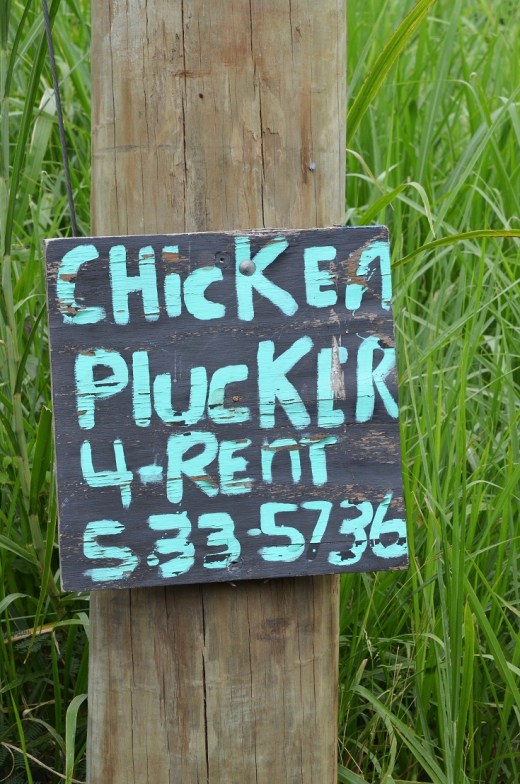 CHicKEn
PlucKER
4-RENT
533-5736